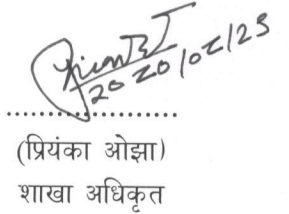 2020/02/23
(प्रियंका ओझा)
शाखा अधिकृत